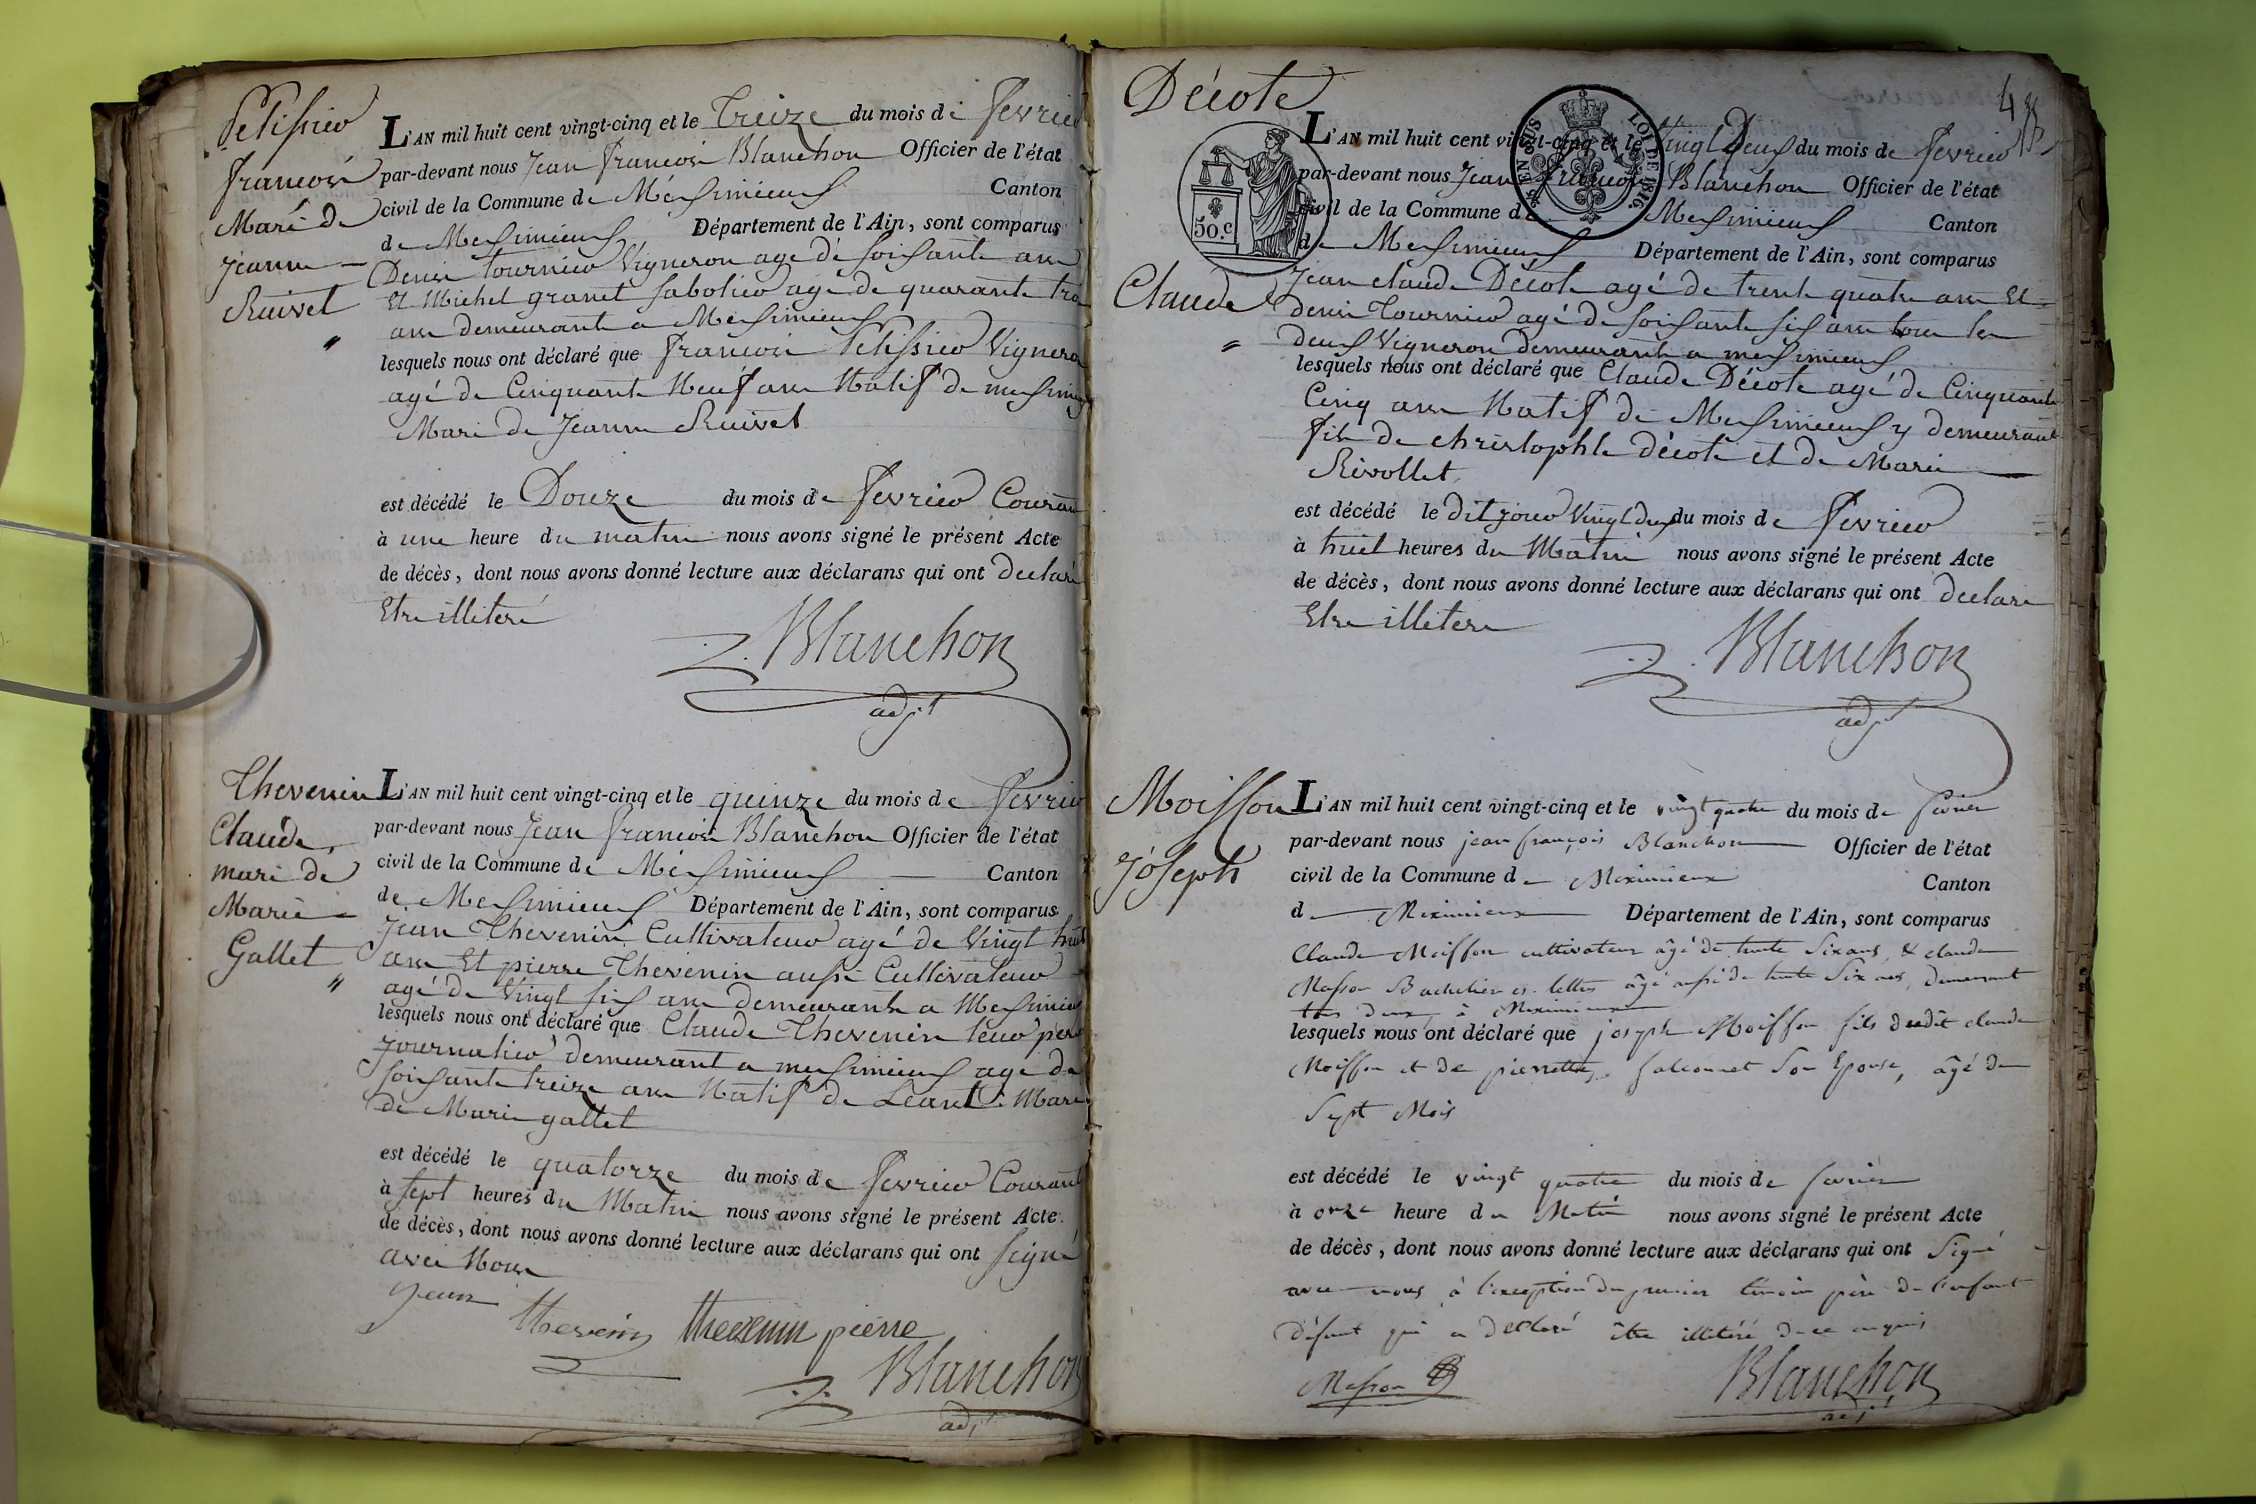 Pelissier
francois
Mari de
jeanne
Ruivet
"
L'AN mil huit cent vingt-cinq et le Treize du mois de fevrier
par-devant nous Jean francois Blanchon Officier de l'état
civil de la Commune de Méximieux Canton
de Meximieux Département de l'Ain, sont comparus
Denis tournier Vigneron agé de soixante ans
Et Michel granet sabotier agé de quarante trois
ans demeurants a Meximieux
lesquels nous ont déclaré que francois Pelissier Vigneron
agé de Cinquante Neuf ans Natif de meximieux
Mari de Jeanne Ruivet
est décédé le Douze du mois de fevrier Courant
à une heure du matin nous avons signé le présent Acte
de décès, dont nous avons donné lecture aux déclarans qui ont declaré
Etre illiteré
Blanchon
adjt
Thevenin
Claude,
mari de
Marie
Gallet
"
L'AN mil huit cent vingt-cinq et le quinze du mois de fevrier
par-devant nous Jean francois Blanchon Officier de l'état
civil de la Commune de Méximieux Canton
de Meximieux Département de l'Ain, sont comparus
Jean Thevenin Cultivateur agé de Vingt huit
ans Et pierre Thevenin aussi Cultivateur
agé de Vingt six ans demeurants a Meximieux
lesquels nous ont déclaré que Claude Thevenin leur pere
journalier demeurant a meximieux agé de
soixante treize ans Natif de Leant Mari
de Marie gallet
est décédé le quatorze du mois de fevrier Courant
à sept heures du Matin nous avons signé le présent Acte
de décès, dont nous avons donné lecture aux déclarans qui ont signé
avec Nous
jean thevenin thevenin pierre
Blanchon
adjt
48
Décote
Claude
"
50.c
25 EN SUS LOI DE 1816.
L'AN mil huit cent vingt-cinq et le Vingt Deux du mois de fevrier
par-devant nous Jean francois Blanchon Officier de l'état
civil de la Commune de Meximieux Canton
de Meximieux Département de l'Ain, sont comparus
Jean claude Décote agé de trente quatre ans Et
denis Tournier agé de soixante six ans tous les
deux Vigneron demeurants a meximieux
lesquels nous ont déclaré que Claude Décote agé de Cinquante
Cinq ans Natif de Meximieux y demeurant
fils de christophle décote et de Marie
Rivollet
est décédé le dit jour Vingt deux du mois de fevrier
à huit heures du Matin nous avons signé le présent Acte
de décès, dont nous avons donné lecture aux déclarans qui ont declaré
Etre illiteré
Blanchon
adjt
Moisson
Joseph
L'AN mil huit cent vingt-cinq et le vingt quatre du mois de fevrier
par-devant nous jean françois Blanchon Officier de l'état
civil de la Commune de Meximieux Canton
d Meximieux Département de l'Ain, sont comparus
Claude Moisson cultivateur âgé de trente six ans, & claude
Masson Bachelier es-lettres âgé aussi de trente six ans, demeurant
tous deux à Meximieux
lesquels nous ont déclaré que joseph Moisson fils dudit claude
Moisson et de pierrette falconnet son Epouse, âgé de
Sept Mois
est décédé le vingt quatre du mois de fevrier
à onze heure du Matin nous avons signé le présent Acte
de décès, dont nous avons donné lecture aux déclarans qui ont Signé
avec nous à l'exception du premier témoin père de l'enfant
défunt qui a déclaré être illitéré de ce enquis
Masson
Blanchon
adjt